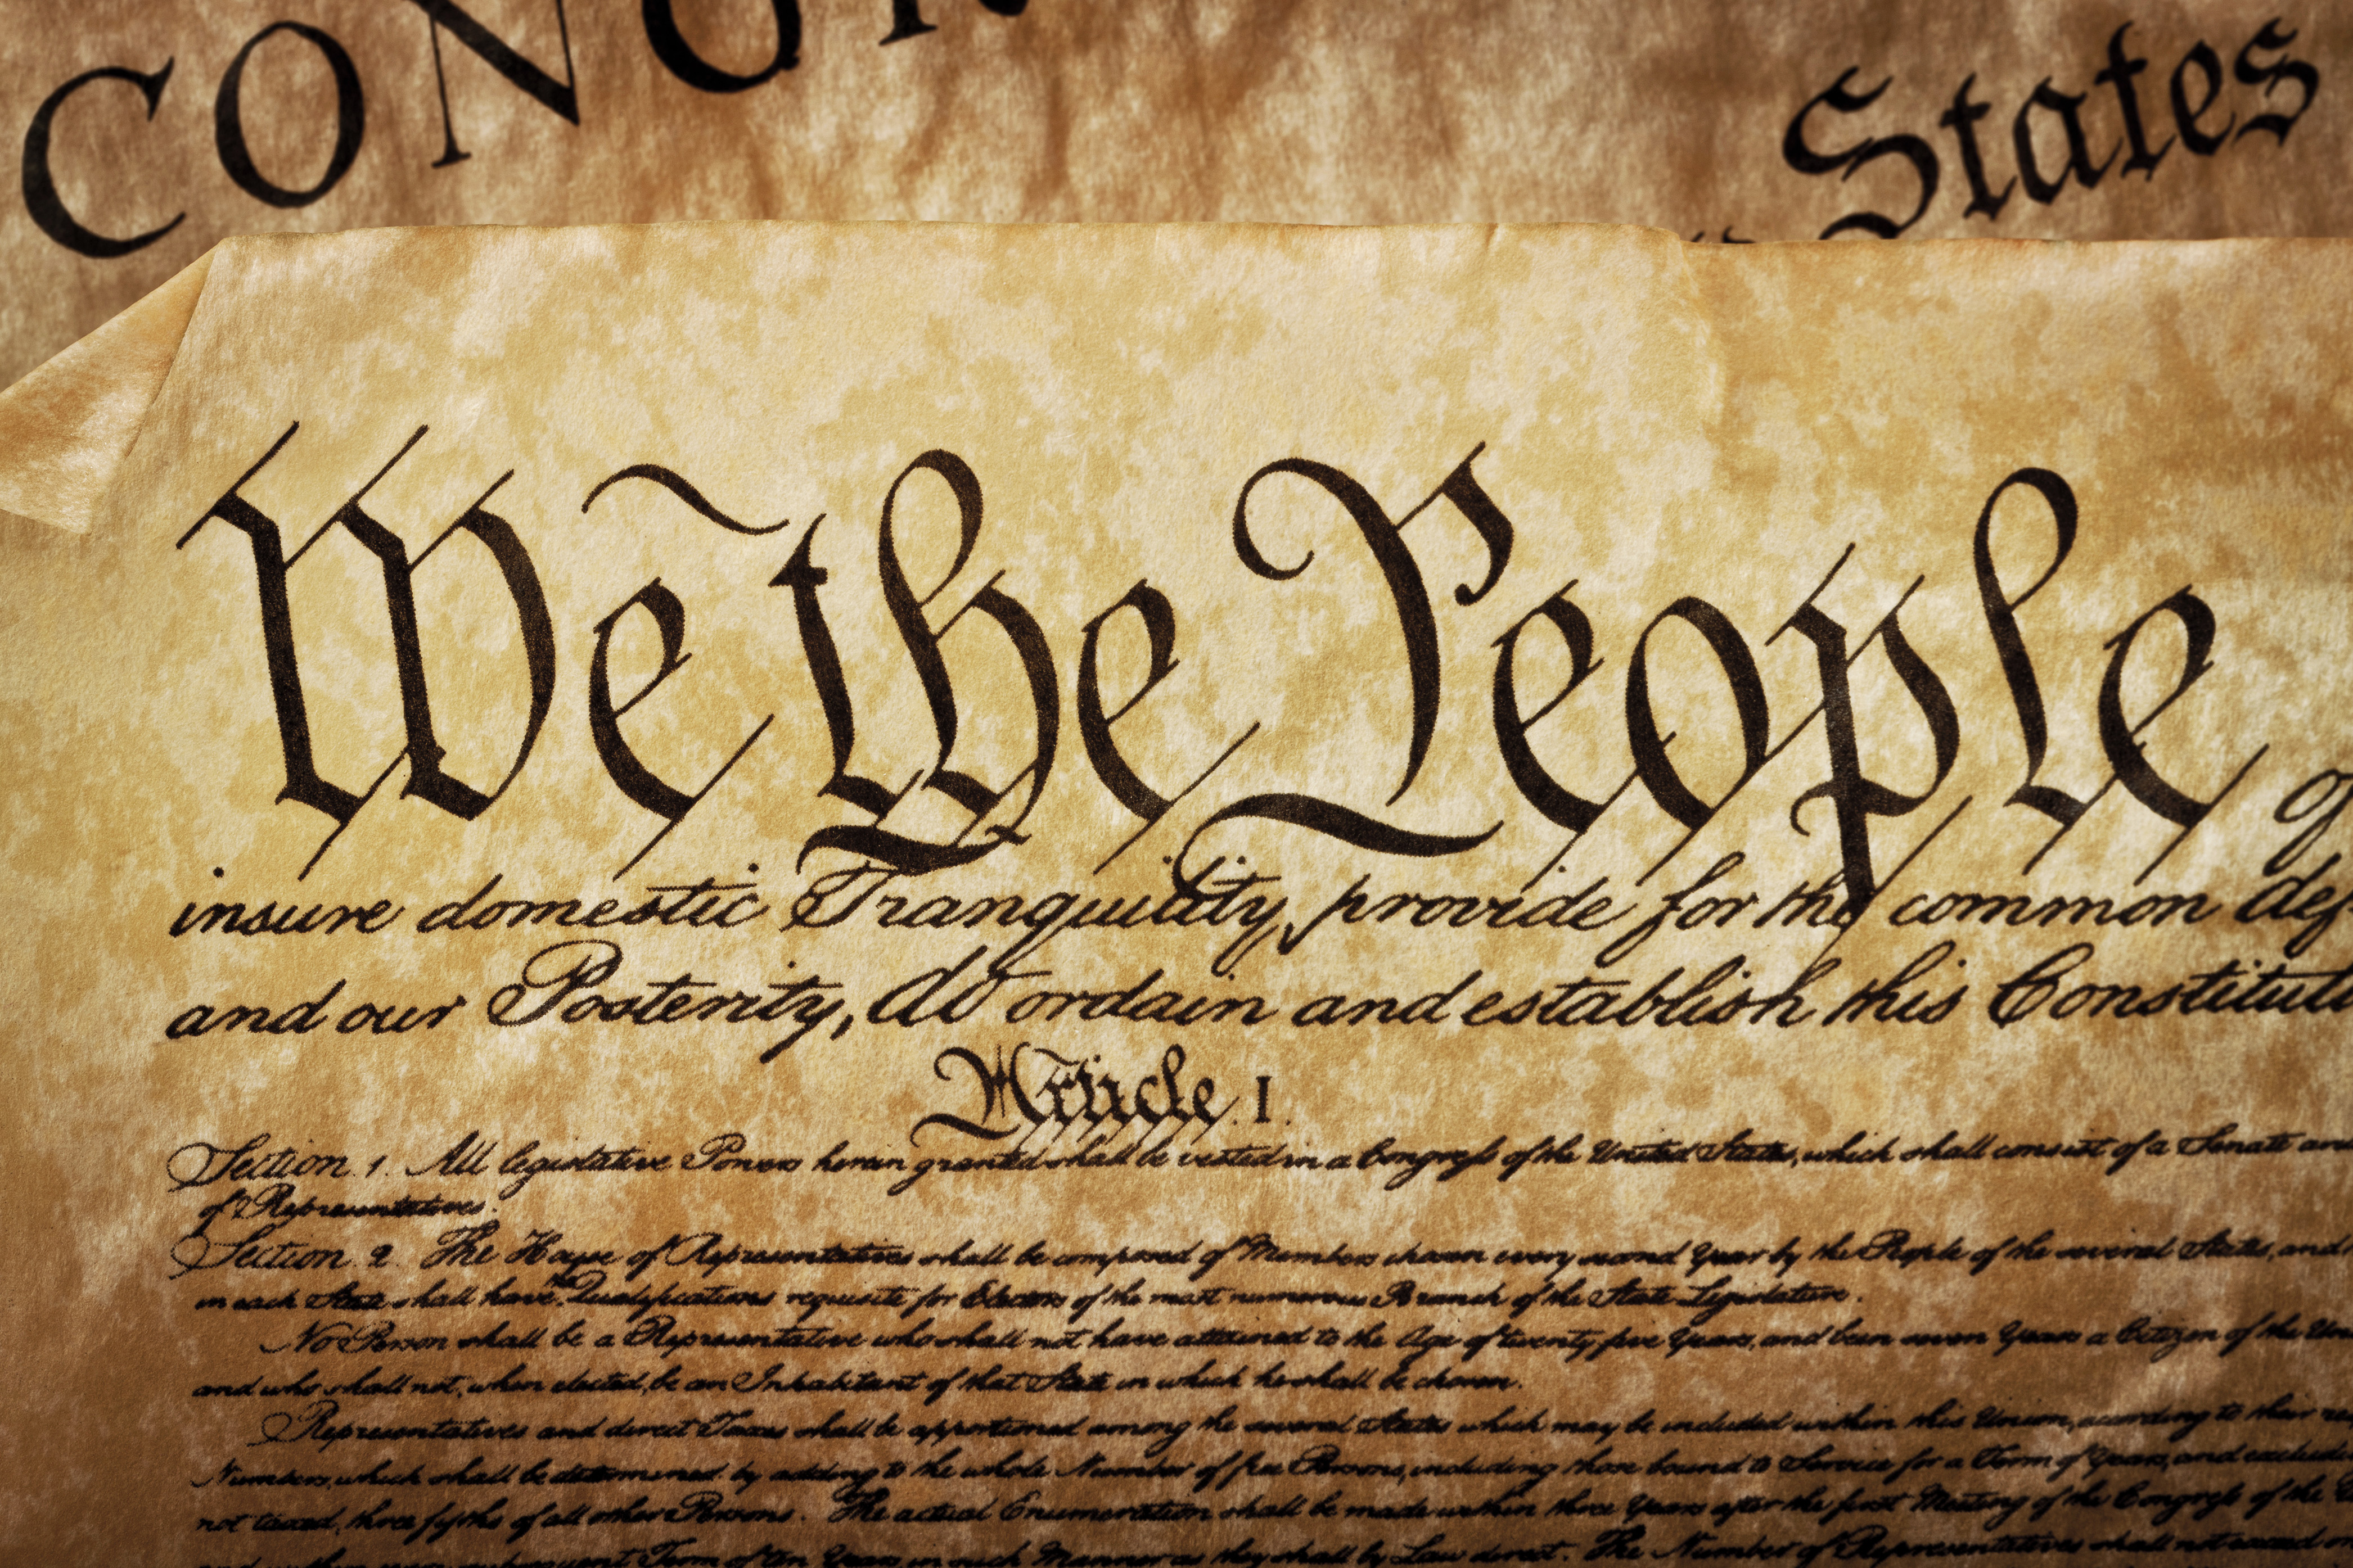 CONGR
States
We the People of
insure domestic Tranquility, provide for the common def
and our Posterity, do ordain and establish this Constituti
Article. I.
Section. 1. All legislative Powers herein granted shall be vested in a Congress of the United States, which shall consist of a Senate and
of Representatives.
Section. 2. The House of Representatives shall be composed of Members chosen every second Year by the People of the several States, and
in each State shall have the Qualifications requisite for Electors of the most numerous Branch of the State Legislature.
No Person shall be a Representative who shall not have attained to the Age of twenty five Years, and been seven Years a Citizen of the Uni
and who shall not, when elected, be an Inhabitant of that State in which he shall be chosen.
Representatives and direct Taxes shall be apportioned among the several States which may be included within this Union, according to their res
Numbers, which shall be determined by adding to the whole Number of free Persons, including those bound to Service for a Term of Years, and excludi
not taxed, three fifths of all other Persons. The actual Enumeration shall be made within three Years after the first Meeting of the Congress of the
and within every subsequent Term of ten Years, in such Manner as they shall by Law direct. The Number of Representatives shall not exceed